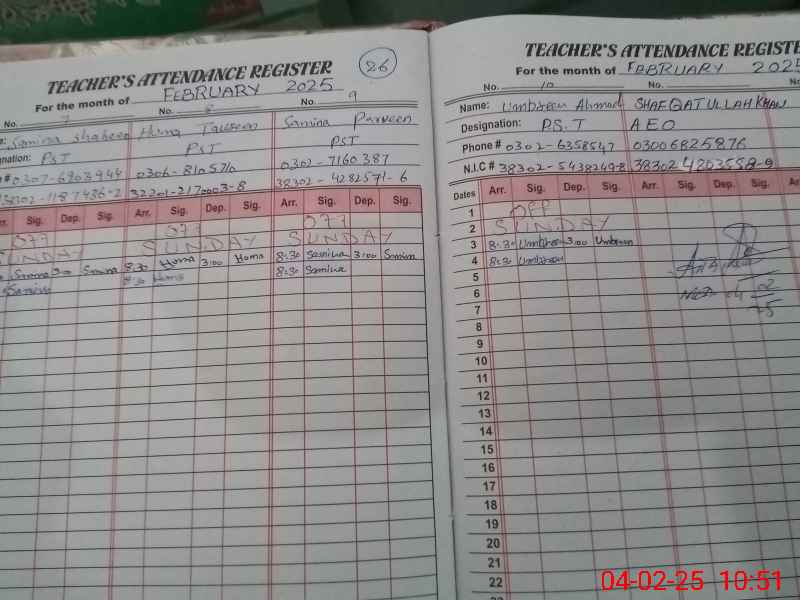 TEACHER'S ATTENDANCE REGISTER
26
For the month of FEBRUARY 2025
No. 7 No. 8 No. 9
Samina Shaheen Huma Tauseen Samina Parveen
nation: PST PST PST
# 0307-6903944 0306-8105710 0302-7160387
38302-1187436-2 32201-2170003-8 38302-4282571-6
rr. Sig. Dep. Sig. Arr. Sig. Dep. Sig. Arr. Sig. Dep. Sig.
OFF OFF OFF
SUNDAY SUNDAY SUNDAY
Samina 3:00 Samina 8:30 Huma 3:00 Huma 8:30 Samina 3:00 Samina
Samina 8:30 Huma 8:30 Samina
TEACHER'S ATTENDANCE REGISTE
For the month of FEBRUARY 2025
No. 10 No. No.
Name: Umbreen Ahmad SHAFQAT ULLAH KHAN
Designation: P.S.T AEO
Phone # 0302-6358547 03006825876
N.I.C # 38302-5438249-8 38302 4203558-9
Dates Arr. Sig. Dep. Sig. Arr. Sig. Dep. Sig. Arr.
1 OFF
2 SUNDAY
3 8:30 Umbreen 3:00 Umbreen
4 8:30 Umbreen
5
6 04/02
7 25
8
9
10
11
12
13
14
15
16
17
18
19
20
21
22
04-02-25 10:51